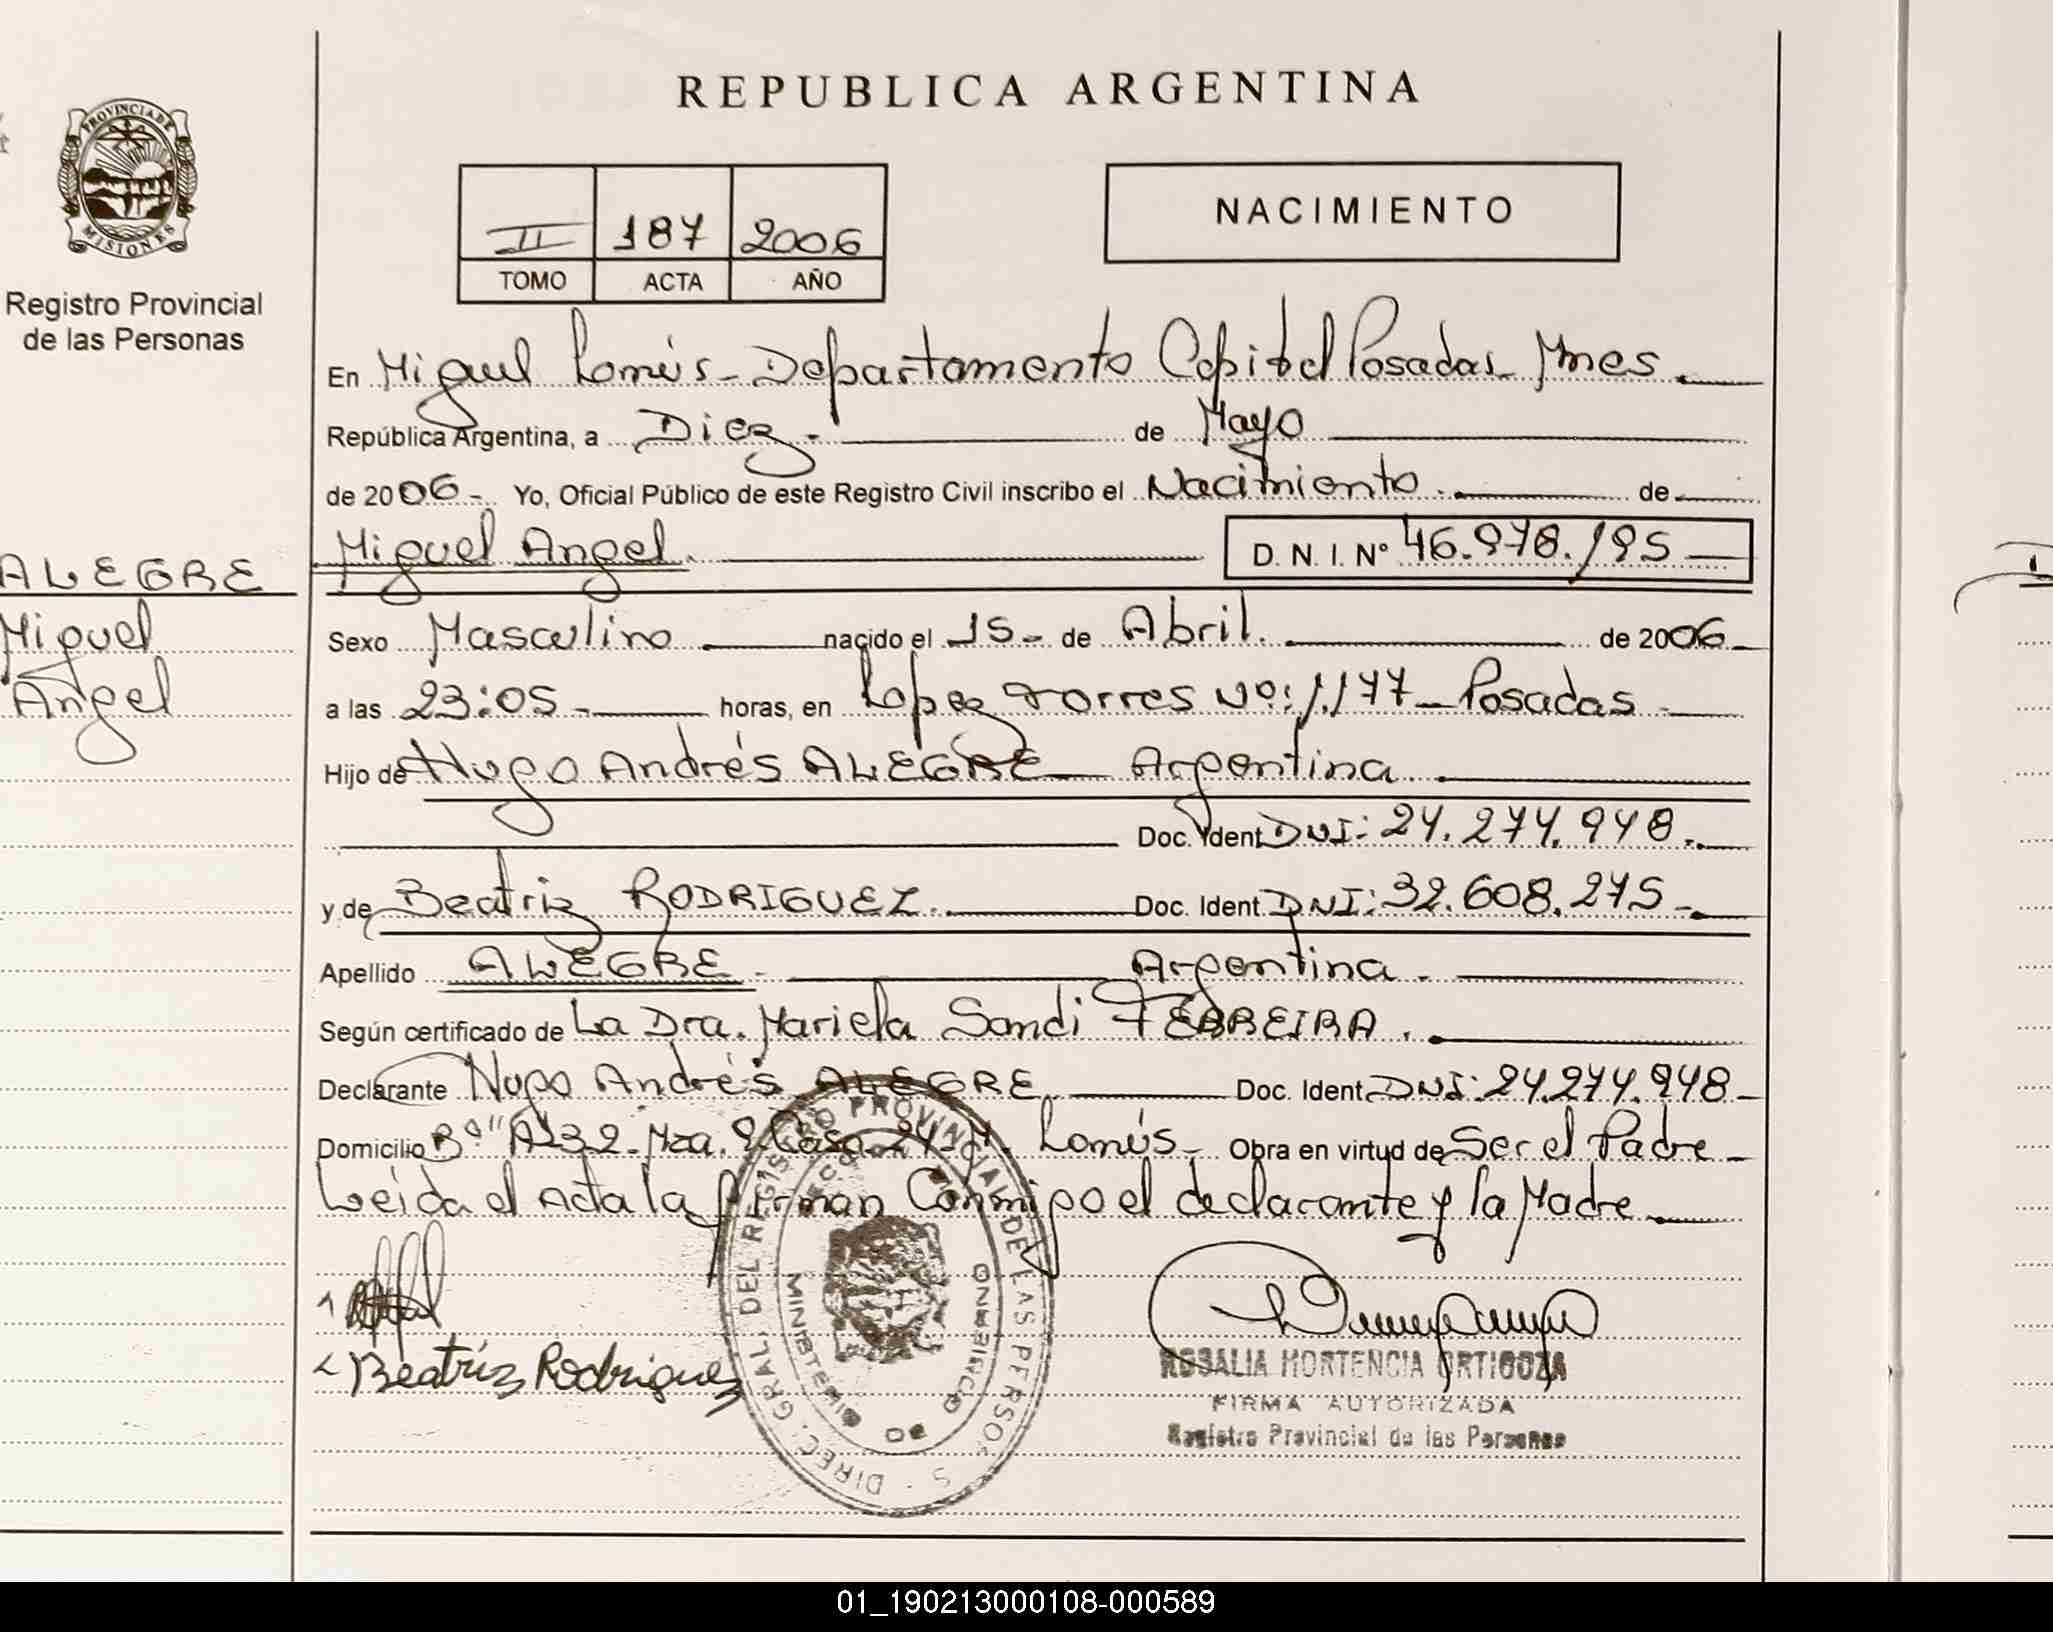 PROVINCIA DE
MISIONES
Registro Provincial
de las Personas
ALEGRE
Miguel
Angel
REPUBLICA ARGENTINA
II 187 2006
TOMO ACTA AÑO
NACIMIENTO
En Miguel Lanús - Departamento Capital Posadas Mnes.
República Argentina, a Diez.- de Mayo
de 2006.- Yo, Oficial Público de este Registro Civil inscribo el Nacimiento. de
Miguel Angel. D. N. I. Nº 46.978.195
Sexo Masculino nacido el 15- de Abril. de 2006
a las 23:05.- horas, en Lopez Torres Nº: 1.177 - Posadas
Hijo de Hugo Andrés ALEGRE Argentina
Doc. Ident. DNI: 24.274.948.
y de Beatriz RODRIGUEZ. Doc. Ident. DNI: 32.608.275
Apellido ALEGRE. Argentina.
Según certificado de La Dra. Mariela Sandi FERREIRA.
Declarante Hugo Andrés ALEGRE Doc. Ident. DNI: 24.274.948
Domicilio Bº "A"32- Mza. 9 Casa 24 M. Lanús. Obra en virtud de Ser el Padre
Leida el Acta la firman Conmigo el declarante y la Madre
Beatriz Rodriguez
DIREC. GRAL. DEL REGISTRO PROVINCIAL DE LAS PERSONAS
MINISTERIO DE GOBIERNO
ROSALIA HORTENCIA ORTIGOZA
FIRMA AUTORIZADA
Registro Provincial de las Personas
01_190213000108-000589